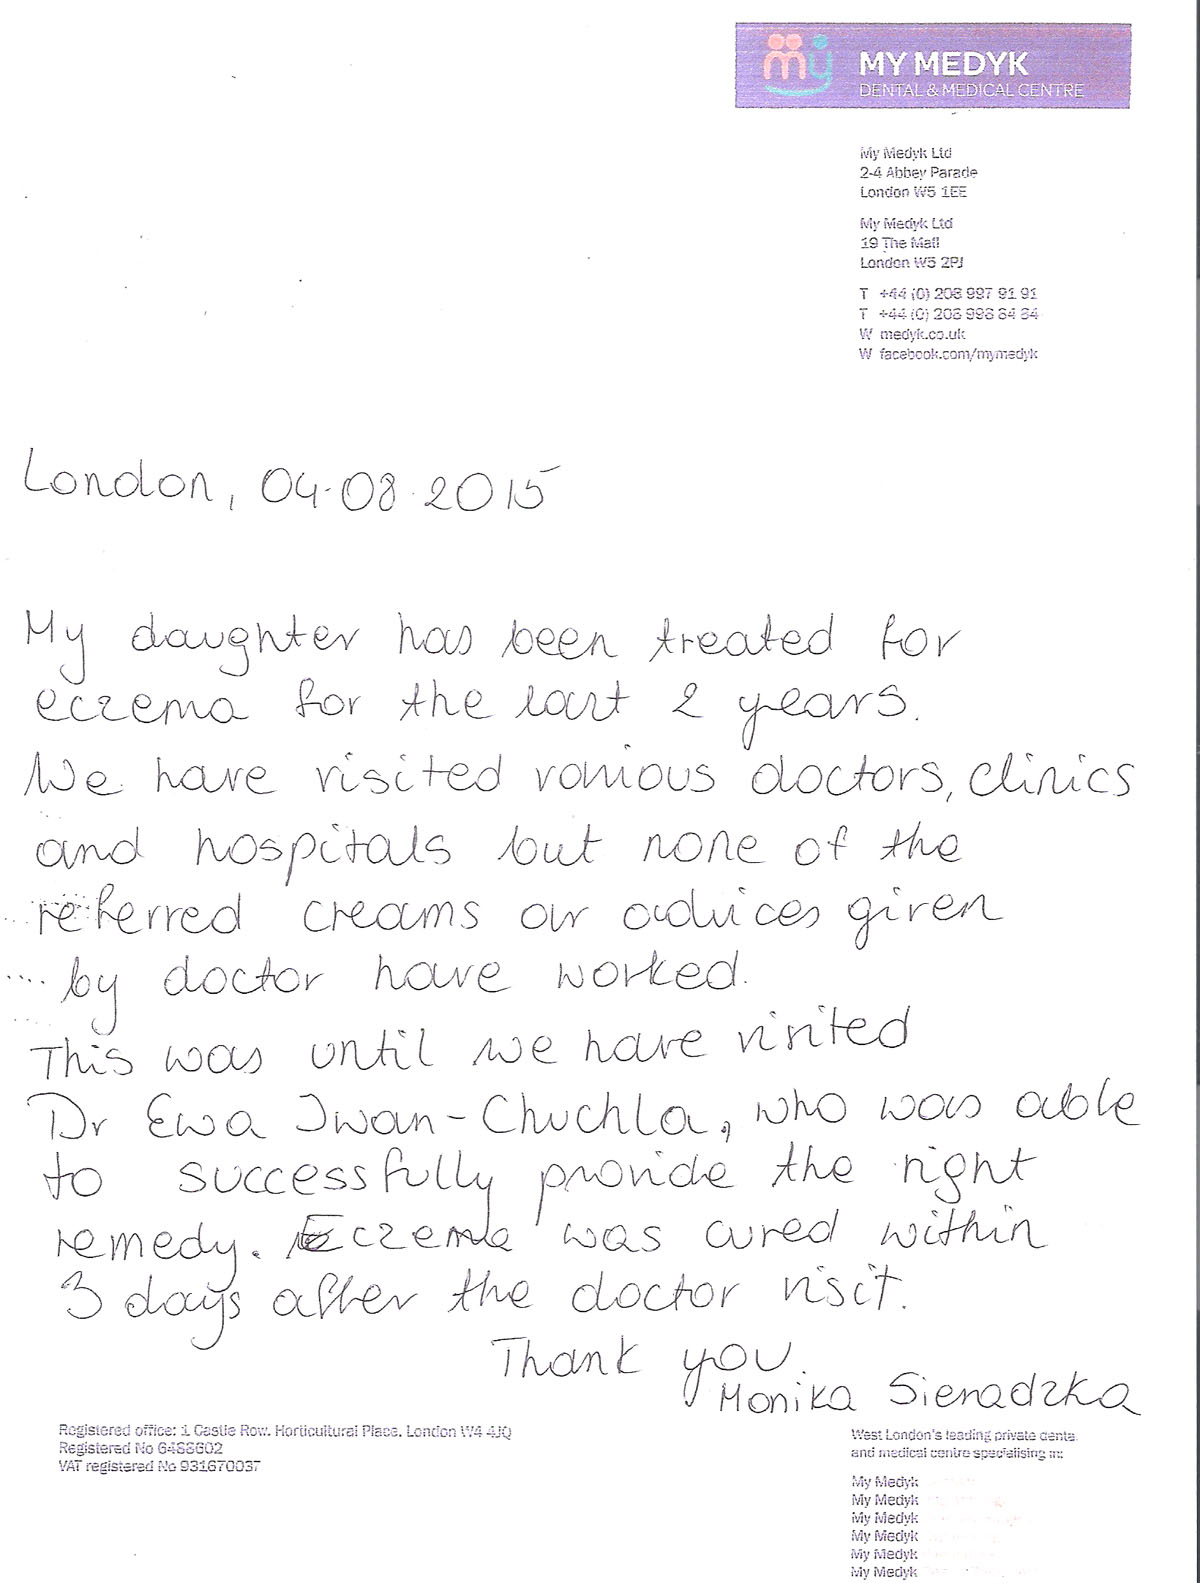 my
MY MEDYK
DENTAL & MEDICAL CENTRE
My Medyk Ltd
2-4 Abbey Parade
London W5 1EE
My Medyk Ltd
19 The Mall
London W5 2PJ
T +44 (0) 208 997 91 91
T +44 (0) 208 998 84 84
W medyk.co.uk
W facebook.com/mymedyk
London, 04-08.2015
My daughter has been treated for
eczema for the last 2 years.
We have visited various doctors, clinics
and hospitals but none of the
referred creams our advices given
by doctor have worked.
This was until we have visited
Dr Ewa Iwan-Chuchla, who was able
to successfully provide the right
remedy. Eczema was cured within
3 days after the doctor visit.
Thank you.
Monika Sieradzka
Registered office: 1 Castle Row, Horticultural Place, London W4 4JQ
Registered No
VAT registered No 931670037
West London's leading private dental
and medical centre specialising in:
My Medyk
My Medyk
My Medyk
My Medyk
My Medyk
My Medyk